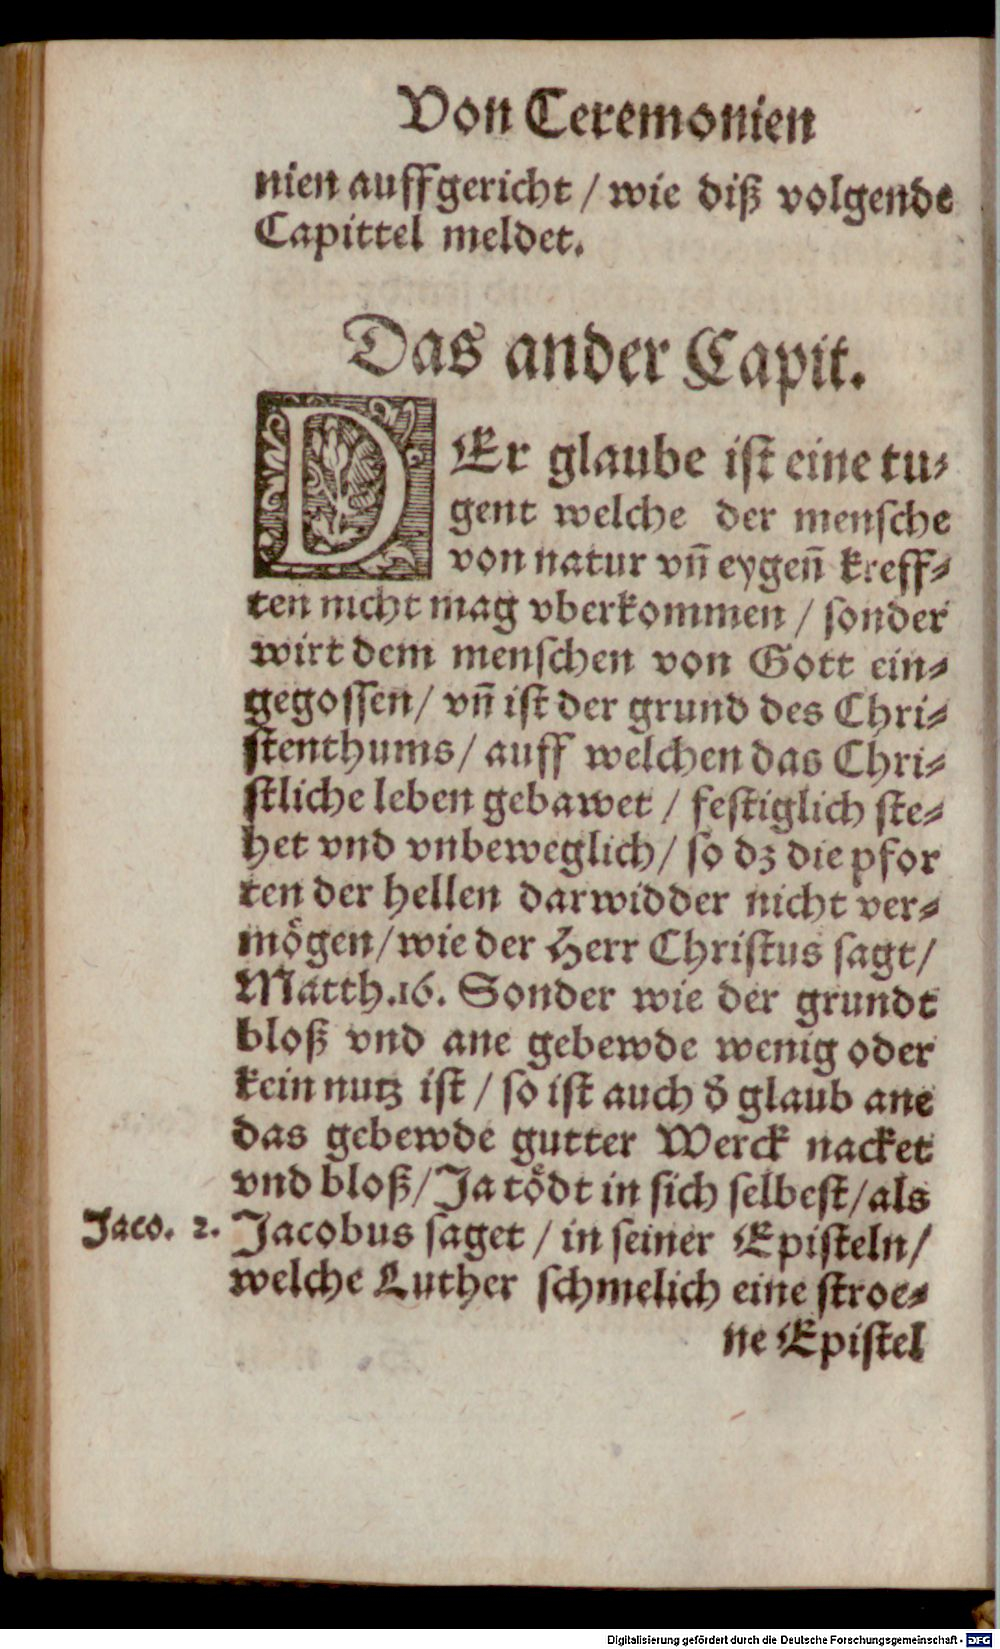 Von Ceremonien
nien auffgericht / wie diß volgende
Capittel meldet.
Das ander Capit.
DEr glaube ist eine tu⸗
gent welche der mensche
von natur vñ eygeñ kreff⸗
ten nicht mag vberkommen / sonder
wirt dem menschen von Gott ein⸗
gegossen / vñ ist der grund des Chri⸗
stenthums / auff welchen das Chri⸗
stliche leben gebawet / festiglich ste⸗
het vnd vnbeweglich / so dz die pfor
ten der hellen darwidder nicht ver⸗
mögen / wie der Herr Christus sagt /
Matth.16. Sonder wie der grundt
bloß vnd ane gebewde wenig oder
kein nutz ist / so ist auch d̕ glaub ane
das gebewde gutter Werck nacket
vnd bloß / Ja tödt in sich selbest / als
Jaco. 2. Jacobus saget / in seiner Episteln /
welche Luther schmelich eine stroe⸗
ne Epistel
Digitalisierung gefördert durch die Deutsche Forschungsgemeinschaft - DFG